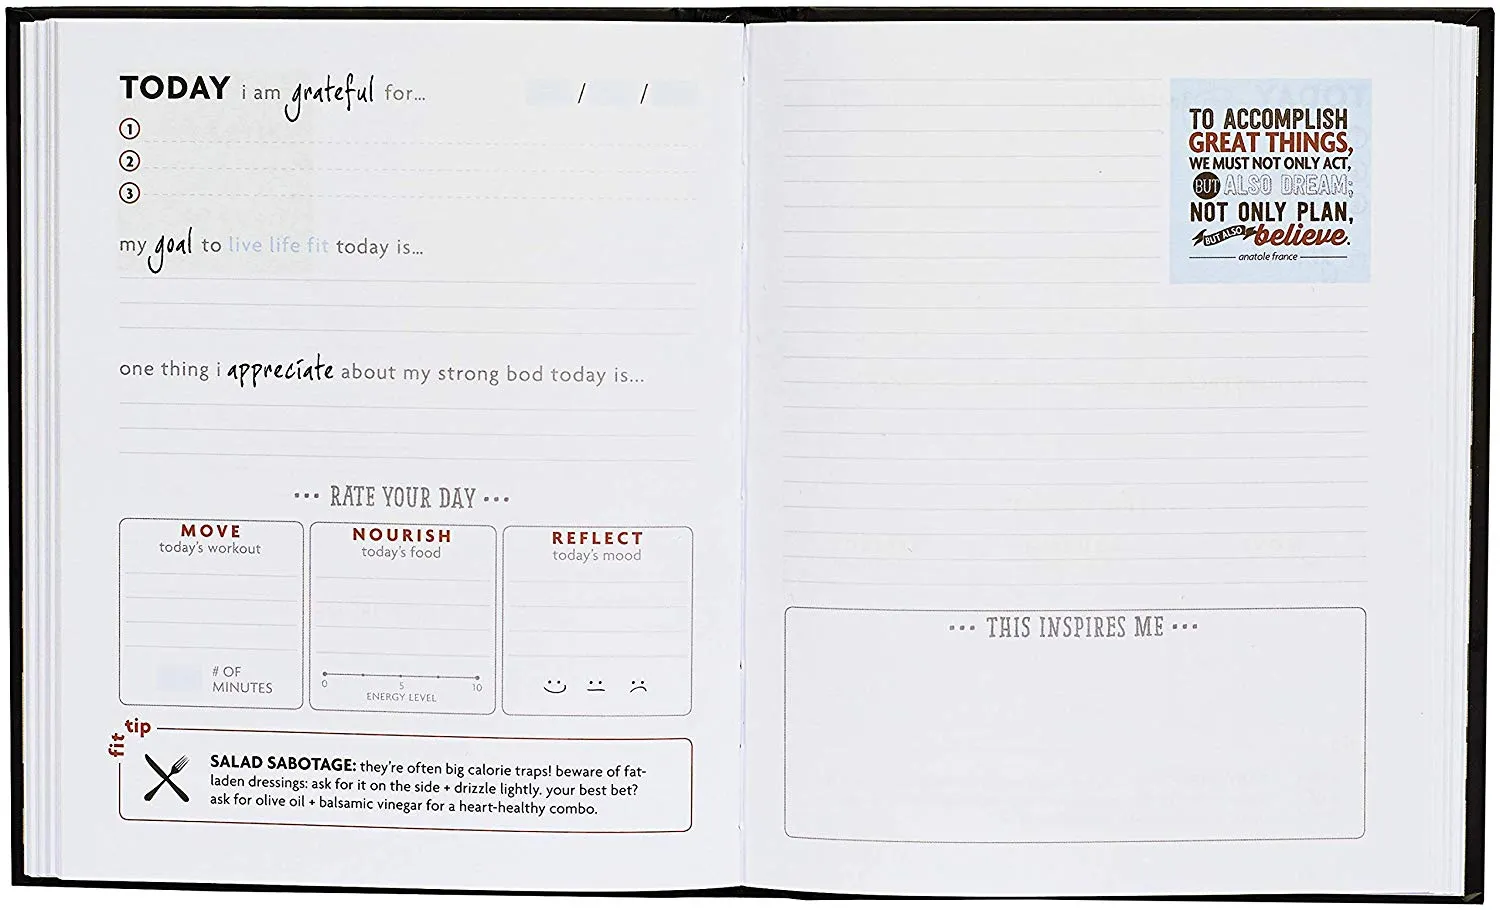 TODAY i am grateful for...
/ /
1
2
3
my goal to live life fit today is...
one thing i appreciate about my strong bod today is...
••• RATE YOUR DAY •••
MOVE
today's workout
# OF
MINUTES
NOURISH
today's food
0 5 10
ENERGY LEVEL
REFLECT
today's mood
fit tip
SALAD SABOTAGE: they're often big calorie traps! beware of fat-
laden dressings: ask for it on the side + drizzle lightly. your best bet?
ask for olive oil + balsamic vinegar for a heart-healthy combo.
TO ACCOMPLISH
GREAT THINGS,
WE MUST NOT ONLY ACT,
BUT ALSO DREAM;
NOT ONLY PLAN,
BUT ALSO believe.
anatole france
••• THIS INSPIRES ME •••